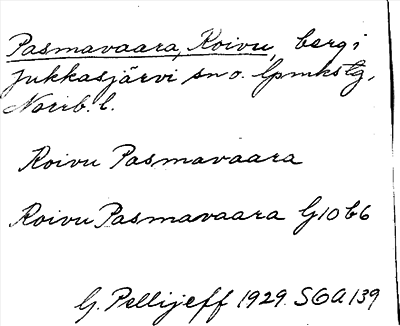 Pasmavaara, Roivu, berg i
Jukkasjärvi sn o. lpmkstg,
Norrb. l.
Roivu Pasmavaara
Roivu Pasmavaara G10 b6
G. Pellijeff 1929. SOA 139